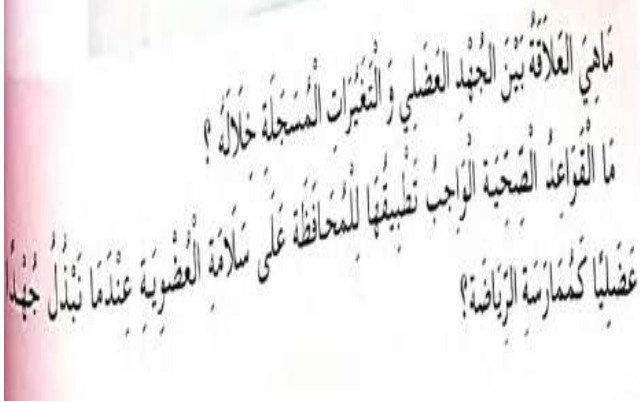 مَاهِيَ العَلاَقَةُ بَيْنَ الجُهْدِ العَضَلِي وَ الْتَغَيُرَاتِ الْمُسَجَلَةِ خِلَالَهُ ؟
مَا الْقَوَاعِدُ الْصِّحَيِة الْوَاجِبُ تَطْبِيقُهَا لِلْمُحَافَظَة عَلَى سَلاَمَةِ الْعُضْوِيَةِ عِنْدَمَا نَبْذُلُ جُهْدًا
عَضَلِيًا كَمُمَارَسَةِ الرِّيَاضَة؟